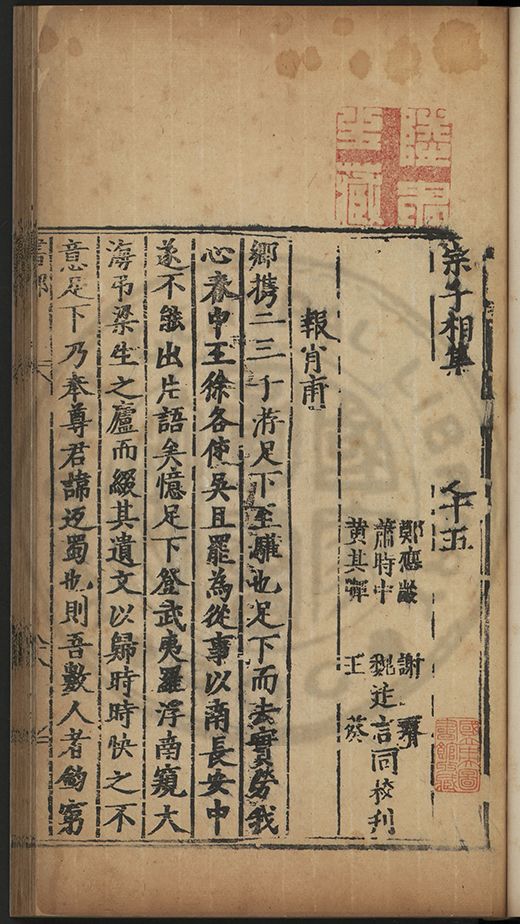 宗子相集
卷十五
鄭應齡 謝 霽
蕭時中 魏廷言同校刋
黄其殫 王 葵
報肖甫
鄉携二三子游足下至驩也足下而去實勞我
心春中王徐各使吳且罷為從事以南長安中
遂不能出片語矣憶足下登武夷羅浮南窺大
海弔梁生之廬而綴其遺文以歸時時快之不
意足下乃奉尊君諱返蜀也則吾數人者鈞窮
書部
國立中央圖書館收藏